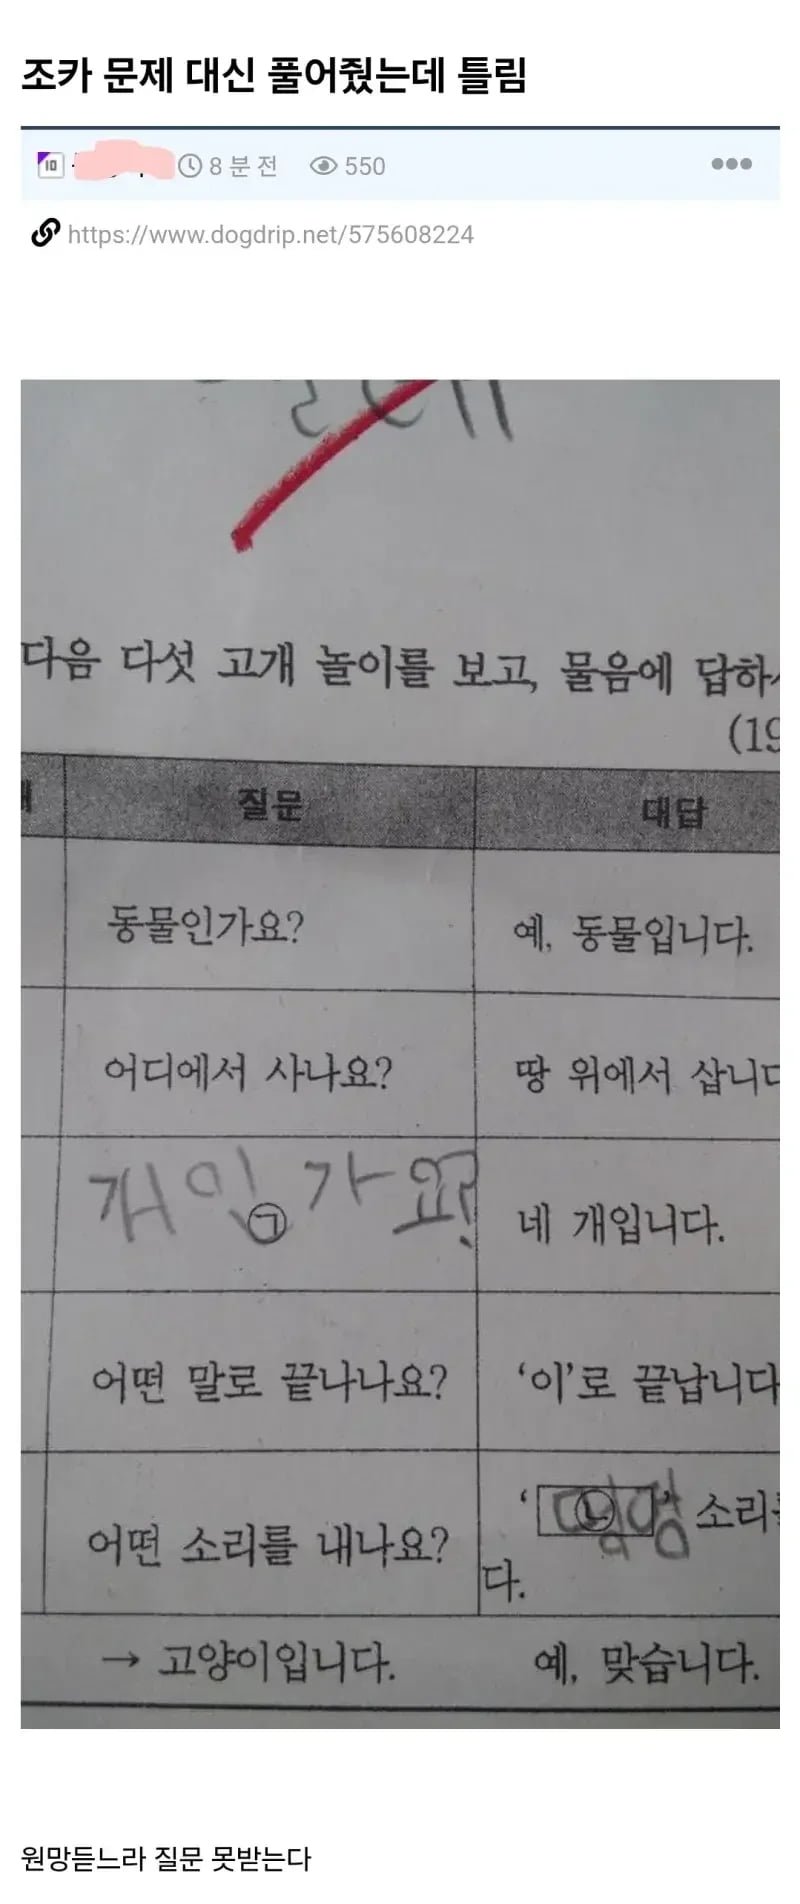 조카 문제 대신 풀어줬는데 틀림
8 분 전 550
https://www.dogdrip.net/575608224
다음 다섯 고개 놀이를 보고, 물음에 답하
(19
질문 대답
동물인가요? 예, 동물입니다.
어디에서 사나요? 땅 위에서 삽니다
개인가요? ㉠ 네 개입니다.
어떤 말로 끝나나요? ‘이’로 끝납니다
어떤 소리를 내나요? ‘㉡ 야옹’ 소리를
다.
→ 고양이입니다. 예, 맞습니다.
원망듣느라 질문 못받는다